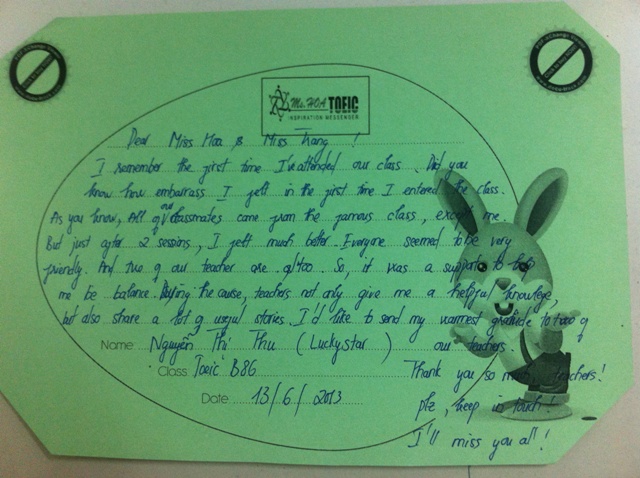 Ms. HOA TOEIC
INSPIRATION MESSENGER
Dear Miss Hoa & Miss Trang !
I remember the first time I've attended our class. Did you
know how embarrass I felt in the first time I entered the class.
As you know, All of our classmates came from the famous class, except me.
But just after 2 sessions, I felt much better. Everyone seemed to be very
friendly. And two of our teacher are too. So, it was a support to help
me be balance. During the course, teachers not only give me a helpful knowlege,
but also share a lot of useful stories. I'd like to send my warmest gratitude to two of
our teachers.
Name: Nguyễn Thị Thu (Luckystar)
Class Toeic B86
Date 13/6/2013
Thank you so much teachers!
plz, keep in touch!
I'll miss you all!